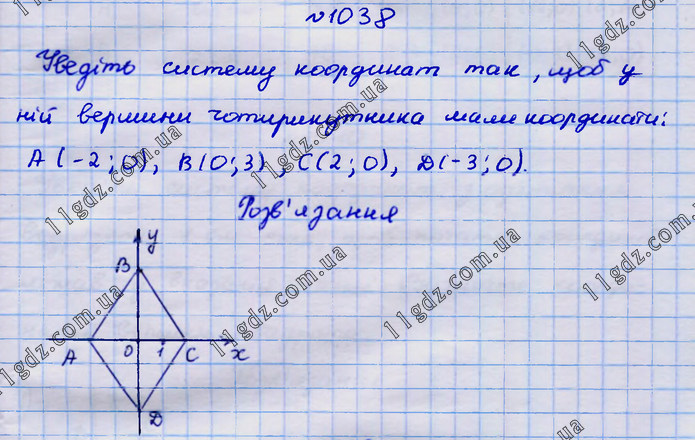 №1038
Уведіть систему координат так, щоб у
ній вершини чотирикутника мали координати:
A(-2;0), B(0;3), C(2;0), D(-3;0).
Розв'язання
y
B
A 0 1 C x
D
11gdz.com.ua
11gdz.com.ua
11gdz.com.ua
11gdz.com.ua
11gdz.com.ua
11gdz.com.ua
11gdz.com.ua
11gdz.com.ua
11gdz.com.ua